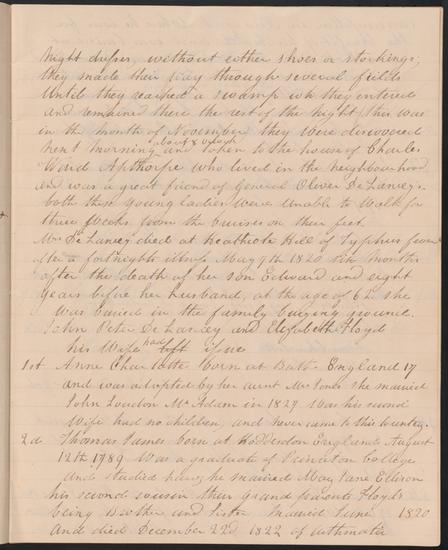 Night dresses, without either shoes or stockings;
they made their way through several fields
Until they reached a swamp wh they entered
and remained there the rest of the night, this was
in the month of November they were discovered
next morning about 8 oclock and taken to the house of Charles
Ward Apthorpe who lived in the neighbourhood
and was a great friend of General Oliver De Lancey.
both these young ladies were Unable to Walk for
three weeks from the bruises on their feet
Mrs De Lancey died at Heathcote Hill of Typhus fever
after a fortnights illness May 7th 1820 six months
after the death of her son Edward and eight
years before her husband, at the age of 62. she
was buried in the family burying ground.
John Peter De Lancey and Elizabeth Floyd
his Wife had left issue
1st Anne Charlotte born at Bath England 17
and was adopted by her aunt Mrs Jones she married
John Loudon McAdam in 1827 was his second
Wife had no children, and never came to this Country.
2d Thomas James born at England August
12th 1789 Was a graduate of Princeton College
and studied law, he married Mary Jane Ellison
his second cousin their grand parents Floyds
being Brother and Sister Married June 1820
and died December 22d 1822 of asthmatic